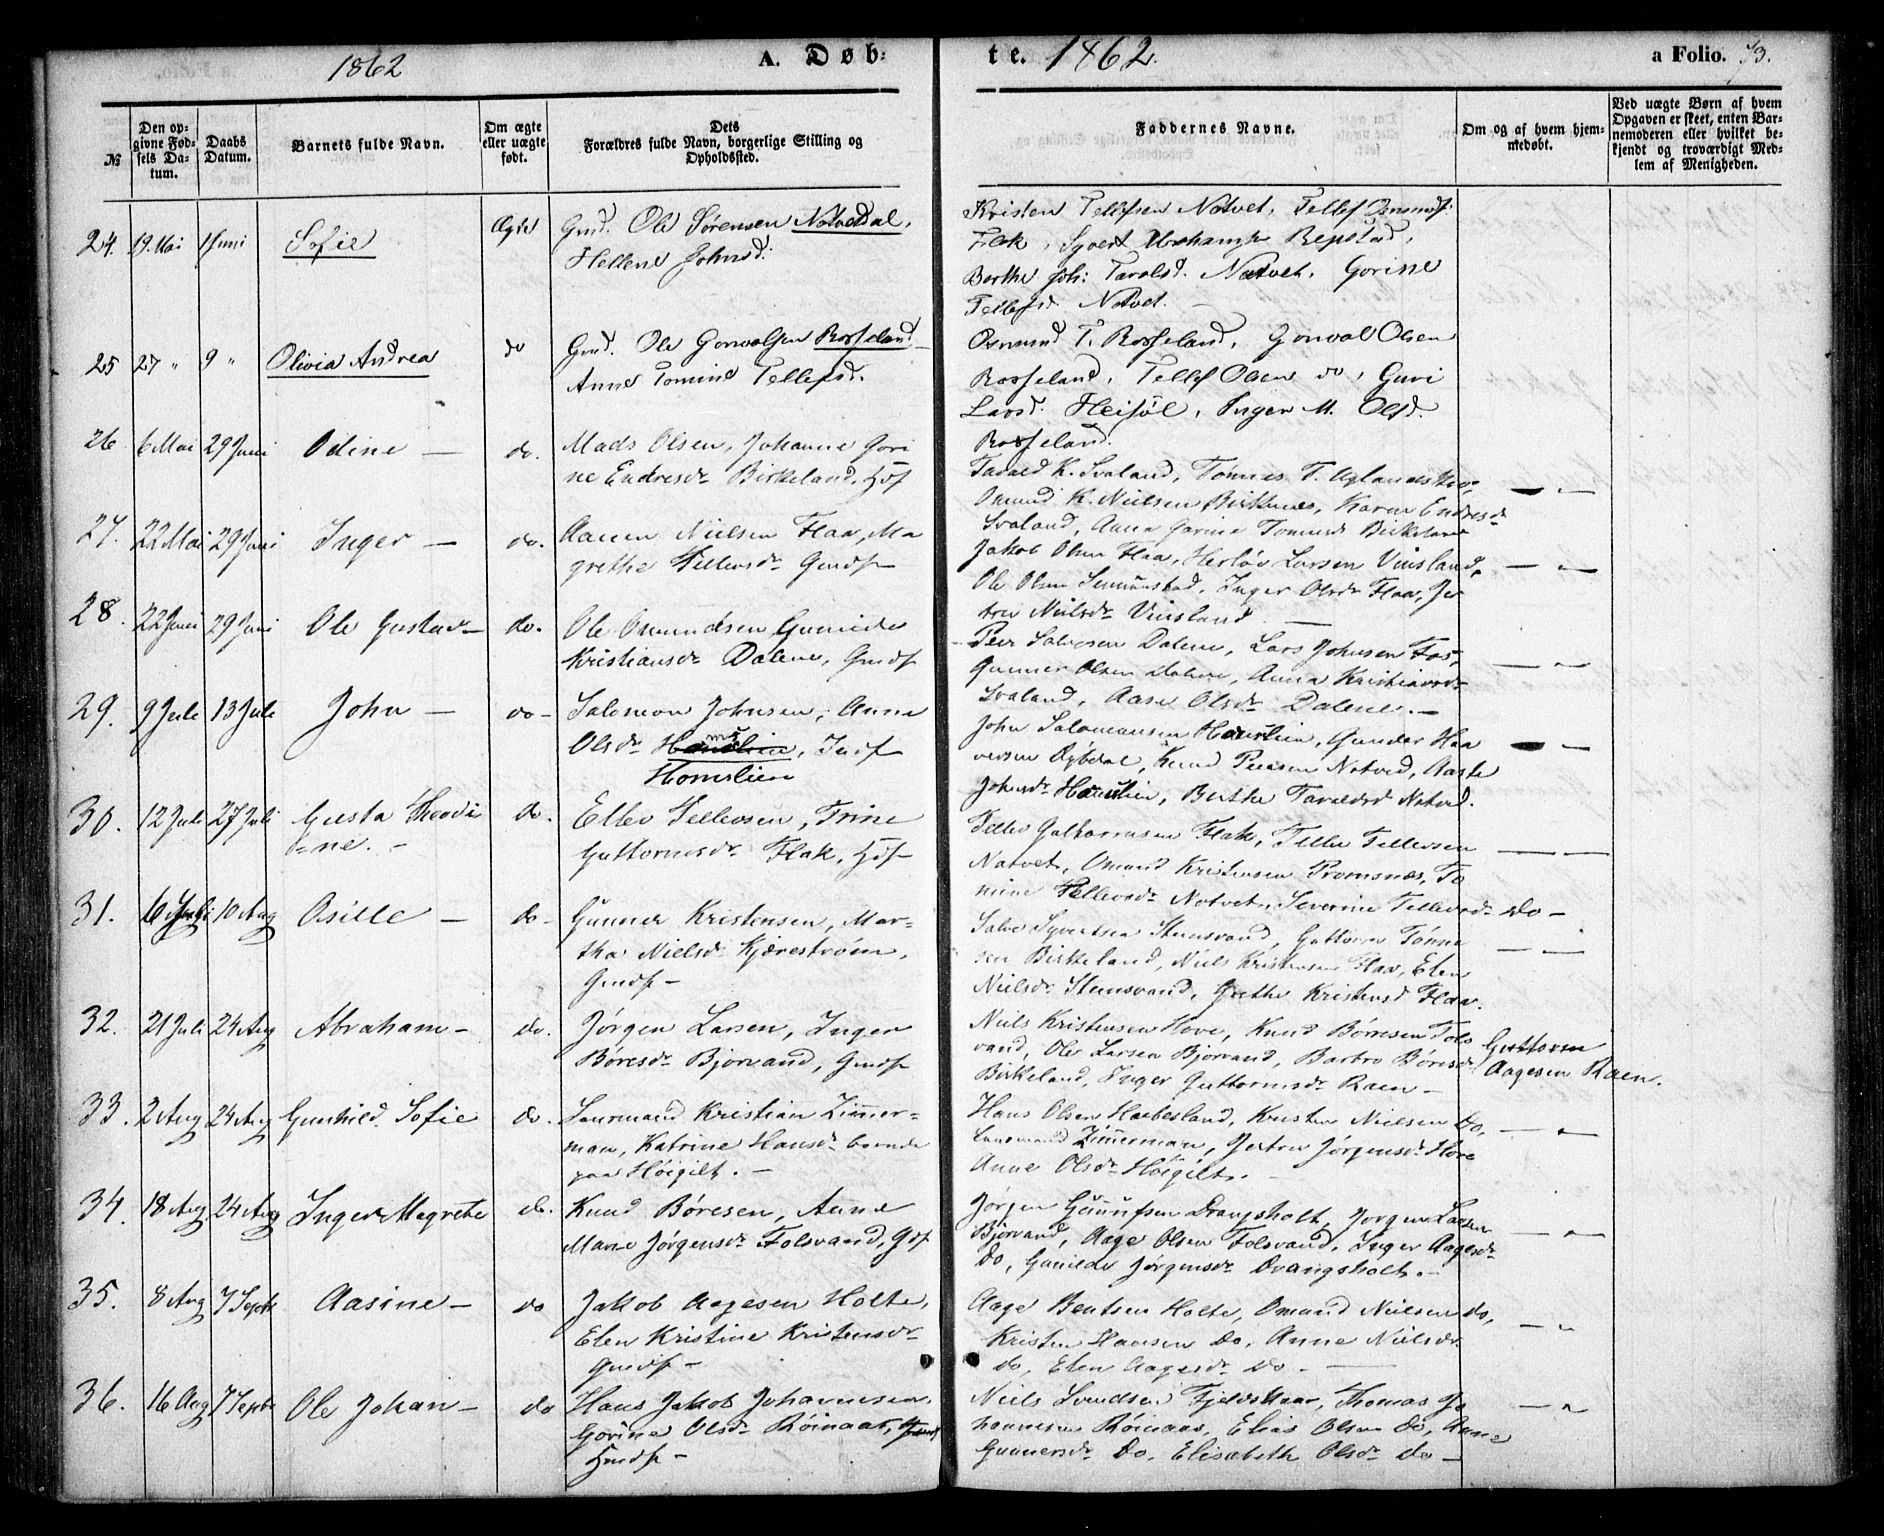 1862 A. Døb-
te. 1862. a Folio. 73.
№ Den opgivne Fødsels Datum. Daabs Datum. Barnets fulde Navn. Om ægte eller uægte født. Dets Forældres fulde Navn, borgerlige Stilling og Opholdssted.
Faddernes Navne. Om og af hvem hjemmedøbt. Ved uægte Børn af hvem Opgaven er skeet, enten Barnemoderen eller hvilket bekjendt og troværdigt Medlem af Menigheden.
24. 19. Mai 1 Juni Sofie Ægte Gmd. Ole Sørensen Natvedal,
Hellene Johnsd:
Kristen Tellefsen Natvet, Tellef Osmundss:
Flak, Syvert Abrahams Repstad,
Berthe Joh: Taralsd. Natvet, Gorine
Tellefsd. Natvet. —
25 27 " 9 " Olivia Andrea do Gmd. Ole Gonvalsen Rosseland
Anne Tomine Tellefsd.
Osmund T. Rosseland, Gonval Olsen
Rosseland, Tellef Olsen do, Guri
Larsd. Heisøl, Inger M. Olsd.
Rosseland.
26 6 Mai 29 Juni Odine — do. Mads Olsen, Johanne Gori
ne Endresdr Birkeland, Hsf
Tarald K. Svaland, Tønnes T. Aglandskev,
Omund K. Nielsen Birkenes, Karen Endresdr
Svaland, Anna Gorine Tomined Birkeland
27. 22 Mai 29 Juni Inger — do. Aanen Nielsen Flaa, Ma
grethe Tellevsdr Gmdsf
Jakob Olsen Flaa, Herløv Larsen Vinsland,
Ole Olsen Senumstad, Inger Olsdr Flaa, Jer
tru Nielsdr Vinsland —
28. 22 Juni 29 Juni Ole Gustav — do. Ole Omundsen, Gunilde
Kristiansdr Dalene, Gmdsf
Peer Salvesen Dalene, Lars Johnsen Fos,
Gunner Olsen Dalene, Anna Kristiansdr
Svaland, Aase Olsdr Dalene. —
29. 9 Juli 13 Juli John — do — Salomon Johnsen, Anne
Olsdr Hamslien, Indf
Homslien
John Salomonsen Homslien, Gunder Haa
versen Dybdal, Knud Peersen Natved, Aaste
Johnsdr Homslien, Berthe Taraldsd Natved.
30. 12 Juli 27 Juli Gusta Theodi
ne. — do. Ellev Tellevsen, Trine
Guttormsdr Flak, Hsf —
Tellev Guttormsen Flak, Tellev Tellevsen
Natvet, Omund Kristensen Tromsnes, To
mine Tellevsdr Natvet, Severine Tellevsdr Do —
31. 6 Juli 10 Aug Asille — do — Gunner Kristensen, Mar-
tha Nielsdr Kjærestrøm,
Gmdsf —
Salve Syvertsen Stensvand, Guttorm Tønne
sen Birkeland, Niels Kristensen Flaa, Elen
Nielsdr Stensvand, Grethe Kristensd Flaa.
32. 21 Juli 24 Aug Abraham — do. Jørgen Larsen, Inger
Børesdr Bjorvand, Gmdsf
Niels Kristensen Hove, Knud Børresen Fols
vand, Olev Larsen Bjorvand, Barbro Børesdr
Birkeland, Inger Guttormsdr Raen —
Guttorm
Aagesen Raen.
33. 2 Aug 24 Aug Gunhild Sofie do. Laurmand Kristian Zimmer-
man, Katrine Hansdr boende
paa Høigilt. —
Hans Olsen Haabesland, Kristen Nielsen Do,
Laurmand Zimmerman, Jertru Jørgensdr Hove
Anne Olsdr Høigilt. —
34. 18 Aug 24 Aug Inger Magrete do. Knud Børesen, Anne
Marie Jørgensdr Folsvand, Gsf
Jørgen Gunufsen Drangsholt, Jørgen Larsen
Bjorvand, Aage Olsen Folsvand, Inger Aagesdr
Do, Gunilde Jørgensdr Drangsholt. —
35. 8 Aug 7 Septb Aasine — do Jakob Aagesen Holte,
Elen Kristine Kristensdr
Gmdsf —
Aage Bentsen Holte, Omund Nielsen do,
Kristen Hansen Do, Anne Nielsdr
do, Elen Aagesdr do —
36. 16 Aug 7 Septbr Ole Johan — do Hans Jakob Johannesen,
Gorine Olsdr Røinaas,
Hmdsf —
Niels Svendsen Fjeldskaar, Thomas Jo
hannesen Røinaas, Elias Olsen Do, Anne
Gunnersdr Do, Elisabeth Olsdr Do —